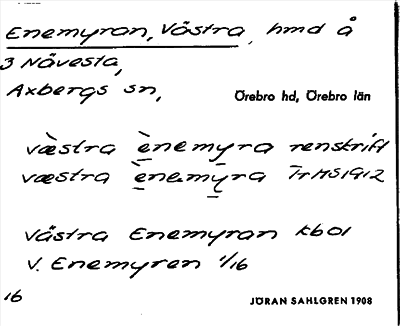 Enemyran, Västra, hmd å
3 Nävesta,
Axbergs sn,
Örebro hd, Örebro län
væ̀stra è̱nemy̱ra renskrift
væstra è̱nemy̱ra TrHS1912
Västra Enemyran kb01
V. Enemyren 1/16
16
JÖRAN SAHLGREN 1908